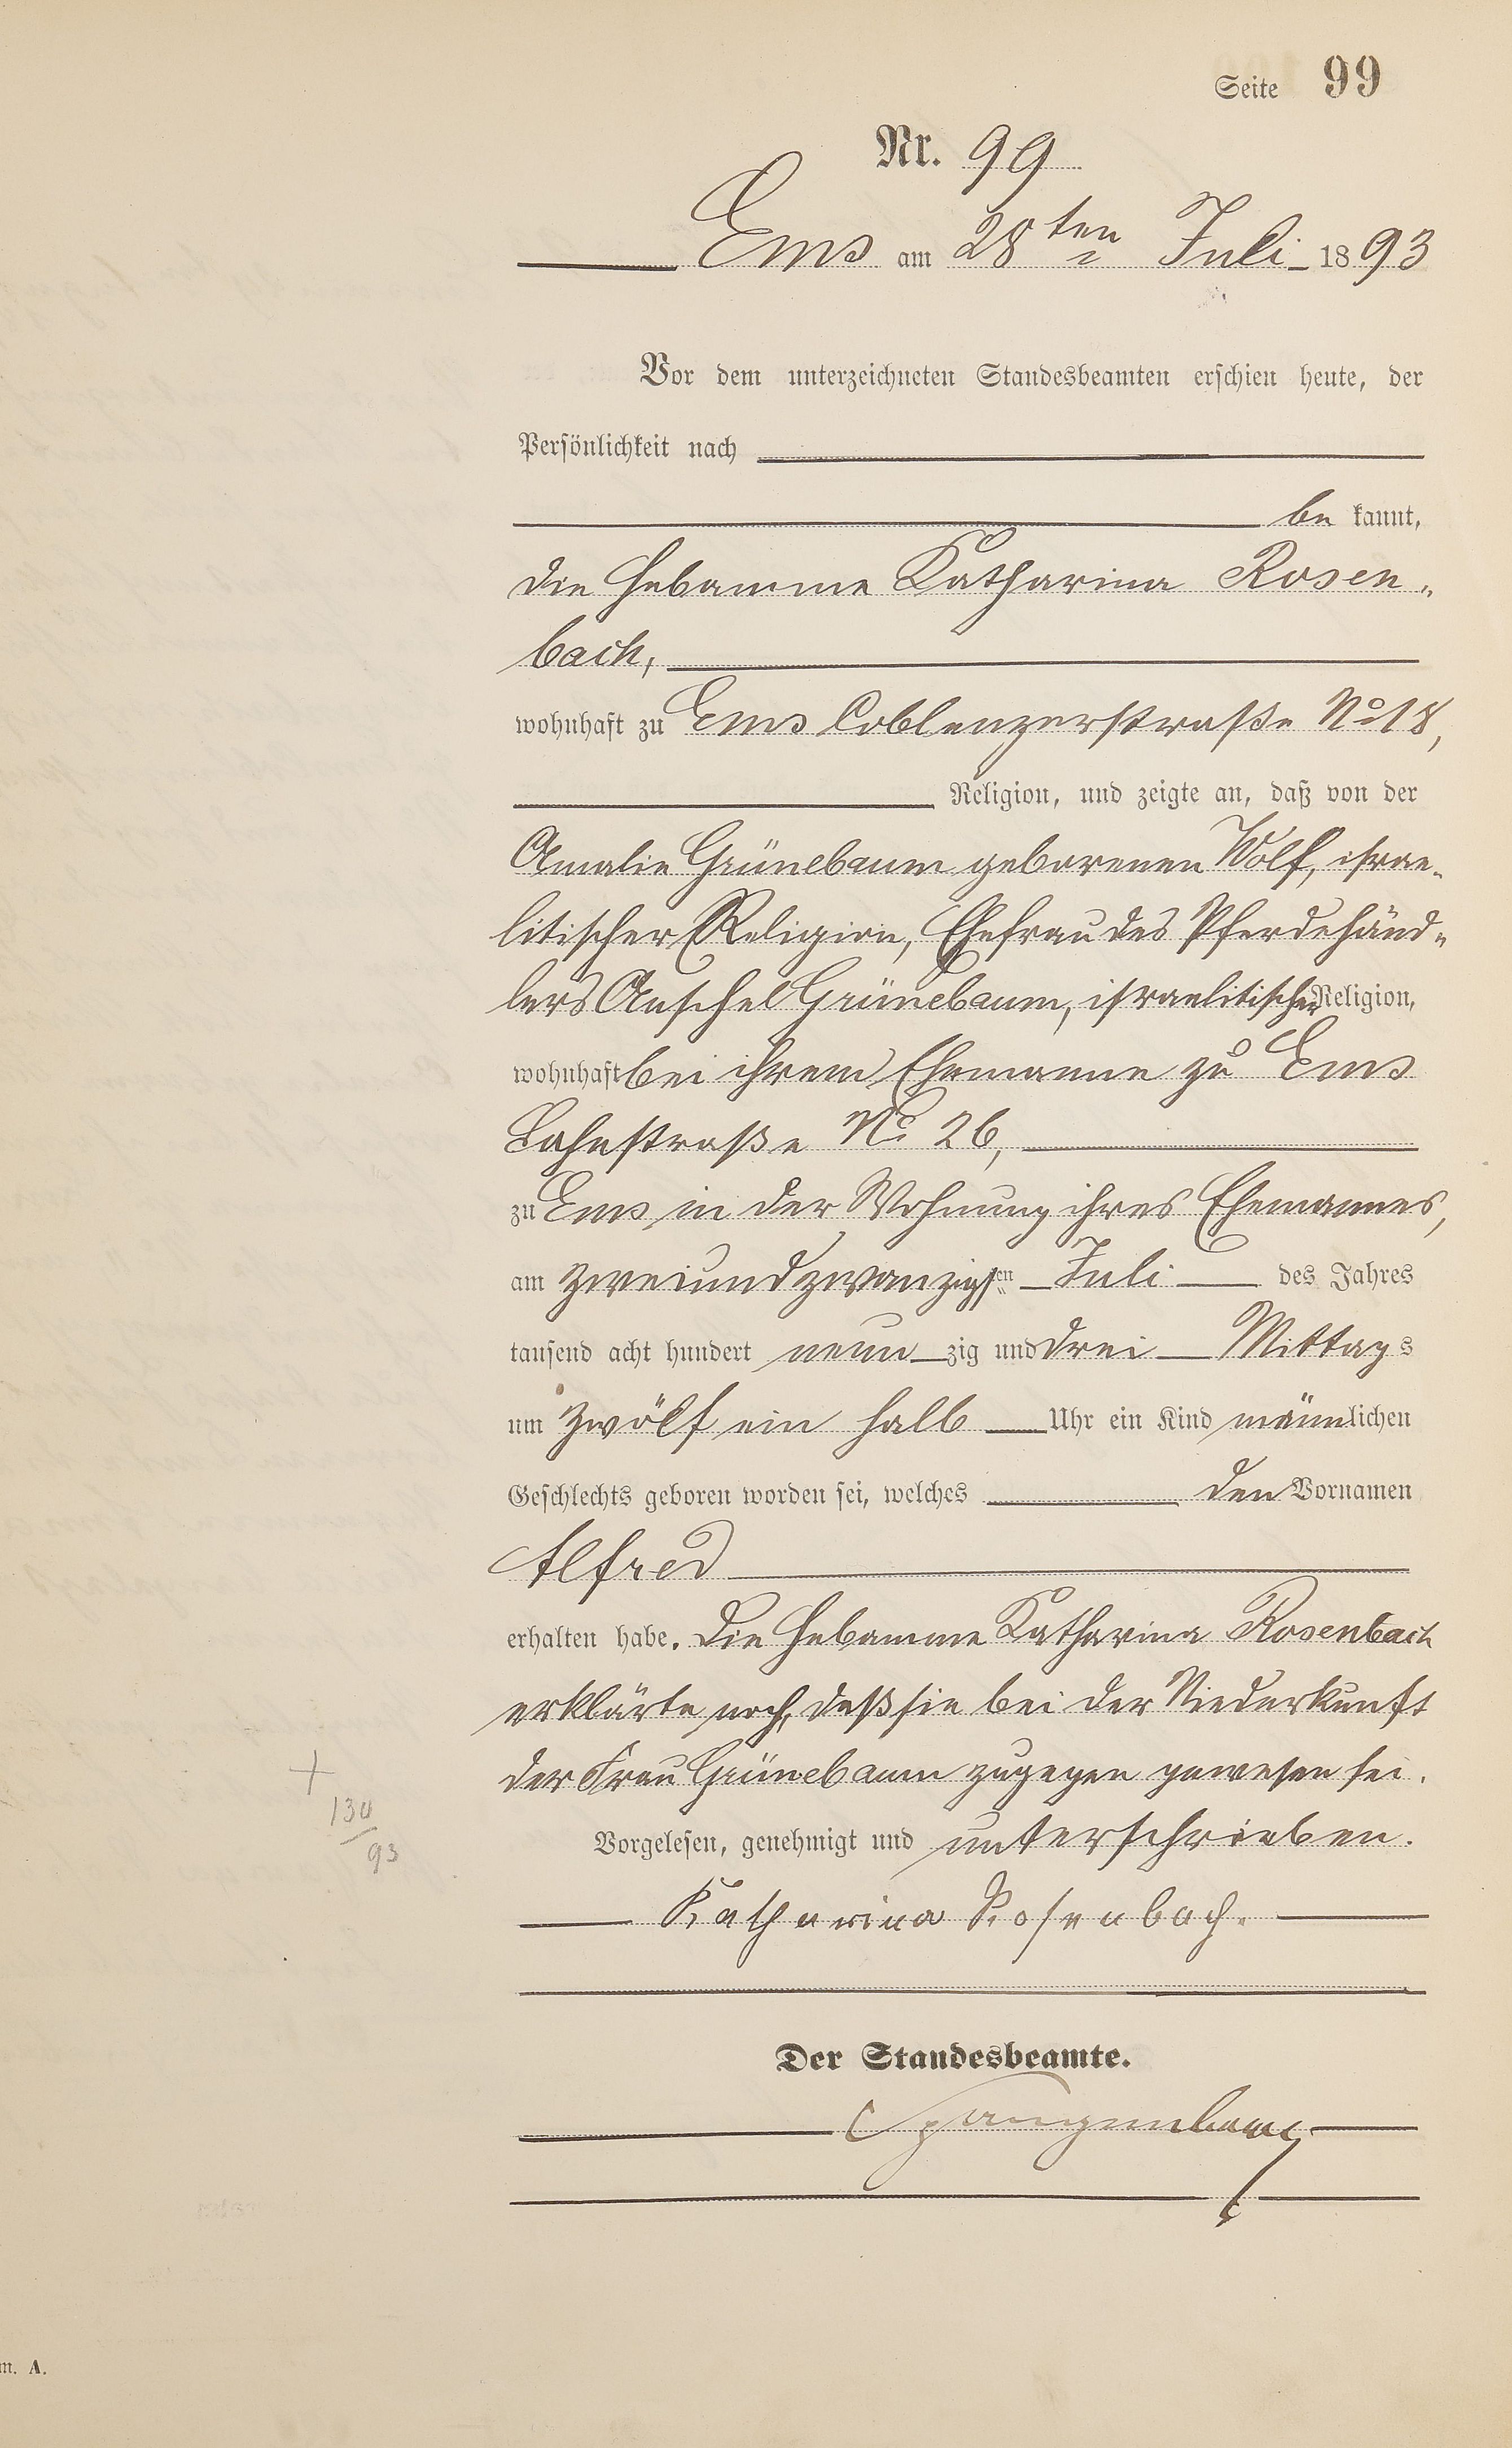 Seite 99
Nr. 99
Ems am 28ten Juli 1893
Vor dem unterzeichneten Standesbeamten erschien heute, der
Persönlichkeit nach
be kannt,
die Hebamme Katharina Rosen„
bach,
wohnhaft zu Ems Coblenzerstraße No 18,
Religion, und zeigte an, daß von der
Amalie Grünebaum geborenen Wolf, israe„
litischer Religion, Ehefrau des Pferdehänd„
lers Anschel Grünebaum, israelitischer Religion,
wohnhaft bei ihrem Ehemanne zu Ems
Lahnstraße No 26,
zu Ems in der Wohnung ihres Ehemannes,
am zweiundzwanzigsten Juli des Jahres
tausend acht hundert neun zig und drei Mittags
um zwölf ein halb Uhr ein Kind männlichen
Geschlechts geboren worden sei, welches den Vornamen
Alfred
erhalten habe. Die Hebamme Katharina Rosenbach
erklärte noch, daß sie bei der Niederkunft
der Frau Grünebaum zugegen gewesen sei.
+
130
93
Vorgelesen, genehmigt und unterschrieben.
Katharina Rosenbach.
Der Standesbeamte.
Spangenberg
m. A.